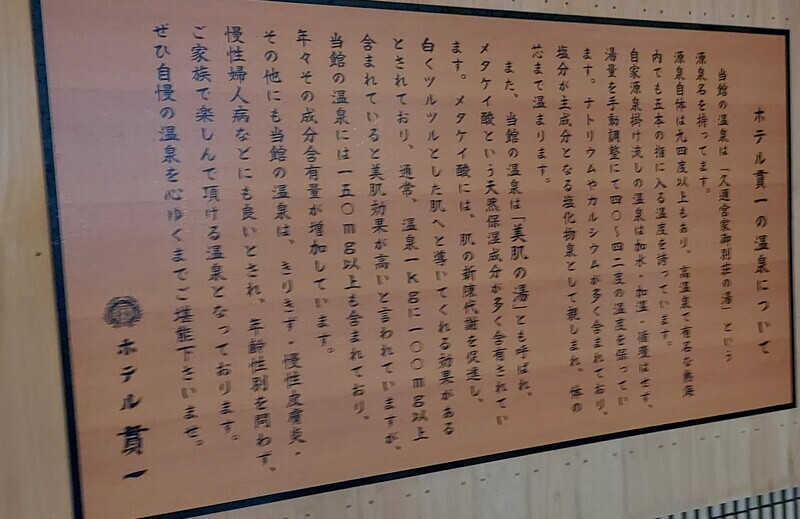 ホテル貫一の温泉について
当館の温泉は「久邇宮家御別荘の湯」という
源泉名を持ってます。
源泉自体は九四度以上もあり、高温泉で有名な熱海
内でも五本の指に入る温度を持っています。
自家源泉掛け流しの温泉は加水・加温・循環はせず、
湯量を手動調整にて四〇〜四二度の温度を保ってい
ます。ナトリウムやカルシウムが多く含まれており、
塩分が主成分となる塩化物泉として親しまれ、体の
芯まで温まります。
また、当館の温泉は「美肌の湯」とも呼ばれ、
メタケイ酸という天然保湿成分が多く含有されてい
ます。メタケイ酸には、肌の新陳代謝を促進し、
白くツルツルとした肌へと導いてくれる効果がある
とされており、通常、温泉一kgに一〇〇mg以上
含まれていると美肌効果が高いと言われていますが、
当館の温泉には一五〇mg以上も含まれており、
年々その成分含有量が増加しています。
その他にも当館の温泉は、きりきず・慢性皮膚炎・
慢性婦人病などにも良いとされ、年齢性別を問わず、
ご家族で楽しんで頂ける温泉となっております。
ぜひ自慢の温泉を心ゆくまでご堪能下さいませ。
ホテル貫一